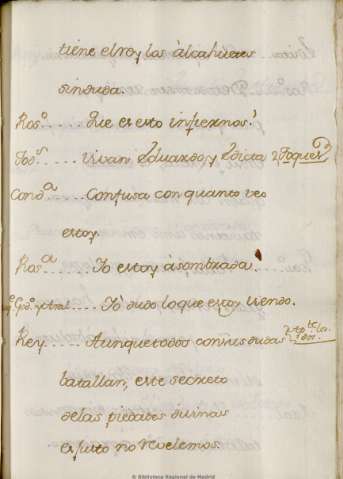 tiene el rey los alcahuetes
sin duda.
Ros.º .... Que es esto infiernos!
Tod.s .... Vivan Eduardo, y Edicta Toques
Cond.a .... Confusa con quanto veo
estoy.
Ros.a .... Yo estoy asombrada.
.... Yo dudo lo que estoy viendo.
Rey .... Aunque todos con mis dudas
batallan, este secreto
delas piedades divinas
a justo no revelemos.
© Biblioteca Nacional de Madrid